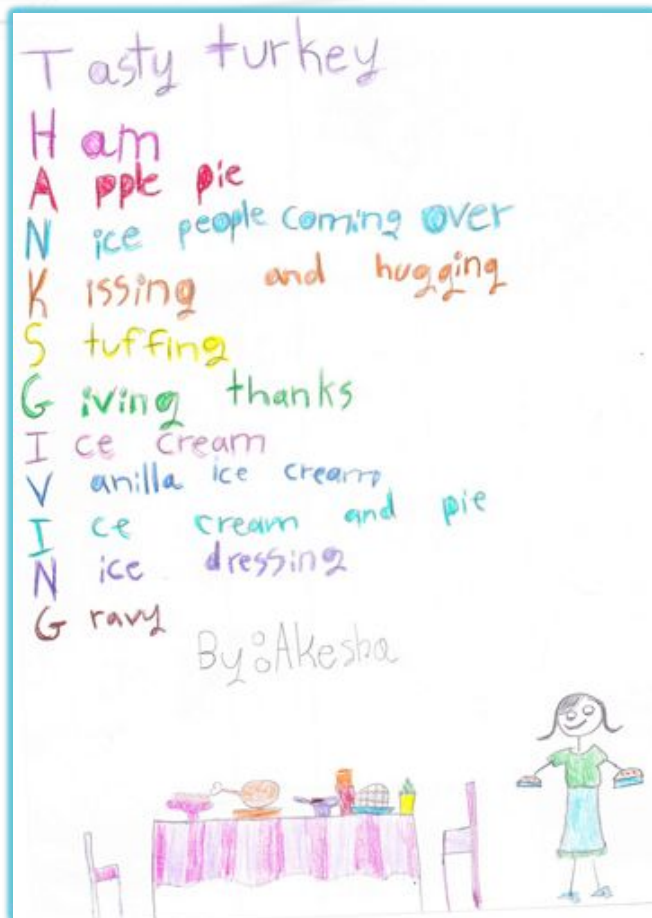 Tasty turkey
Ham
Apple pie
Nice people coming over
Kissing and hugging
Stuffing
Giving thanks
Ice cream
Vanilla ice cream
Ice cream and pie
Nice dressing
Gravy
By: Akesha